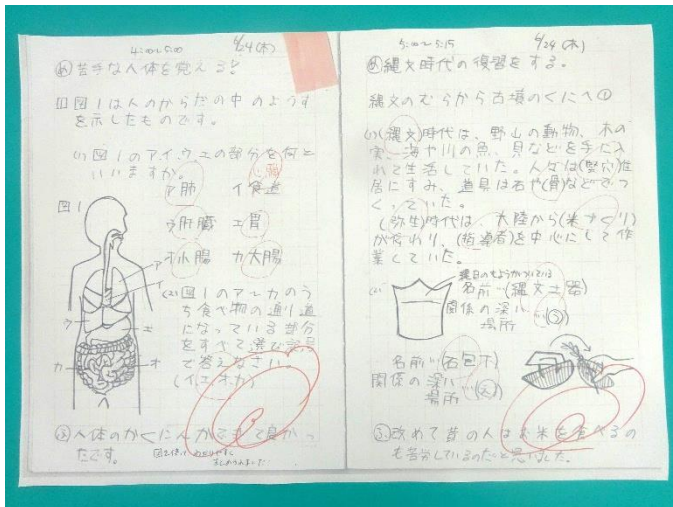 4:00〜5:00 6/24(木)
め苦手な人体を覚える!
1 図1は人のからだの中のようす
を示したものです。
(1)図1のア.イ.ウ.エの部分を何と
いいますか。
ア肺 イ食道
心臓
図1
ウ肝臓 エ胃
オ小腸 カ大腸
ア
イ
ウ
エ
カ
オ
(2)図1のア〜カのう
ち食べ物の通り道
になっている部分
をすべて選び記号
で答えなさい。
(イ.エ.オ.カ)
ふ人体のかくにんができて良かっ
たです。
5:00〜5:15 6/24(木)
め縄文時代の復習をする。
縄文のむらから古墳のくにへ①
(1)(縄文)時代は、野山の動物、木の
実、海や川の魚、貝などを手に入
れて生活していた。人々は(竪穴)住
居にすみ、道具は石や(骨)などでつ
くっていた。
(弥生)時代は、大陸から(米づくり)
が伝わり、(指導者)を中心にして作
業していた。
縄目のもようがついている
(2) 名前…(縄文土器)
関係の深い
場所 …(う)
名前…(石包丁)
関係の深い
場所 …(え)
ふ改めて昔の人はお米を食べるの
も苦労しているのだと思いました。